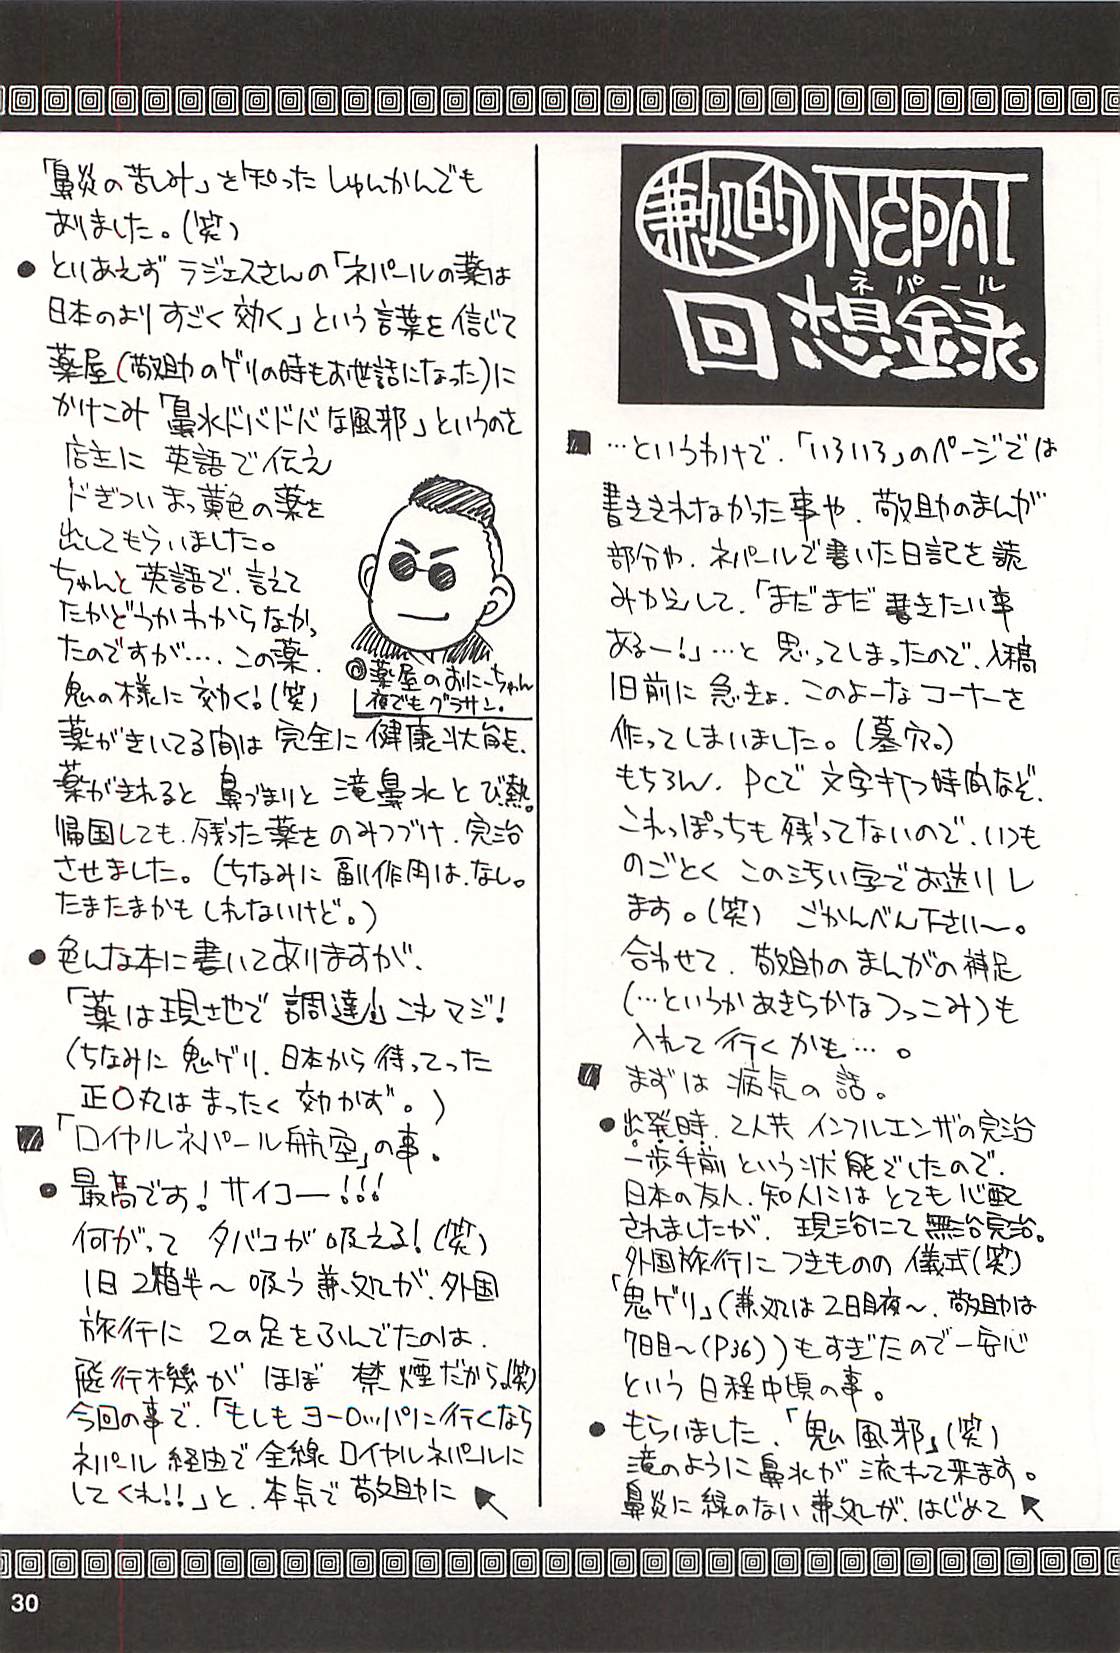 兼処的
NEPAL
ネパール
回想録
…というわけで、「いろいろ」のページでは
書ききれなかった事や、敬助のまんが
部分や、ネパールで書いた日記を読
みかえして、「まだまだ書きたい事
あるー!」…と思ってしまったので、入稿
1日前に急きょ、このよーなコーナーを
作ってしまいました。(墓穴。)
もちろん、PCで文字打つ時間など、
これっぽっちも残ってないので、いつも
のごとくこの汚い字でお送りし
ます。(笑) ごかんべん下さい〜。
合わせて、敬助のまんがの補足
(…というかあきらかなつっこみ)も
入れて行くかも…。
まずは病気の話。
●出発時、2人共インフルエンザの完治
一歩手前という状態でしたので、
日本の友人、知人にはとても心配
されましたが、現治にて無治完治。
外国旅行につきものの儀式(笑)
「鬼ゲリ」(兼処は2日目夜〜、敬助は
7日目〜(P36))もすぎたので一安心
という日程中頃の事。
●もらいました、「鬼風邪」(笑)
滝のように鼻水が流れて来ます。
鼻炎に縁のない兼処が、はじめて
「鼻炎の苦しみ」を知ったしゅんかんでも
ありました。(笑)
●とりあえずラジェスさんの「ネパールの薬は
日本のよりすごく効く」という言葉を信じて
薬屋(敬助のゲリの時もお世話になった)に
かけこみ「鼻水ドバドバな風邪」というのを
店主に英語で伝え
ドぎついまっ黄色の薬を
出してもらいました。
ちゃんと英語で、言えて
たかどうかわからなかっ
たのですが…、この薬、
鬼の様に効く!(笑)
◎薬屋のおにーちゃん
夜でもグラサン。
薬がきいてる間は完全に健康状態、
薬がきれると鼻づまりと滝鼻水とび熱。
帰国しても、残った薬をのみつづけ、完治
させました。(ちなみに副作用は、なし。
たまたまかもしれないけど。)
●色んな本に書いてありますが、
「薬は現地で調達」これマジ!
(ちなみに鬼ゲリ、日本から持ってった
正〇丸はまったく効かず。)
「ロイヤルネパール航空」の事。
●最高です!サイコー!!!
何がってタバコが吸える!(笑)
1日2箱半〜吸う兼処が、外国
旅行に2の足をふんでたのは、
飛行機がほぼ禁煙だから。(笑)
今回の事で、「もしもヨーロッパに行くなら
ネパール経由で全線ロイヤルネパールに
してくれ!!」と、本気で敬助に
30